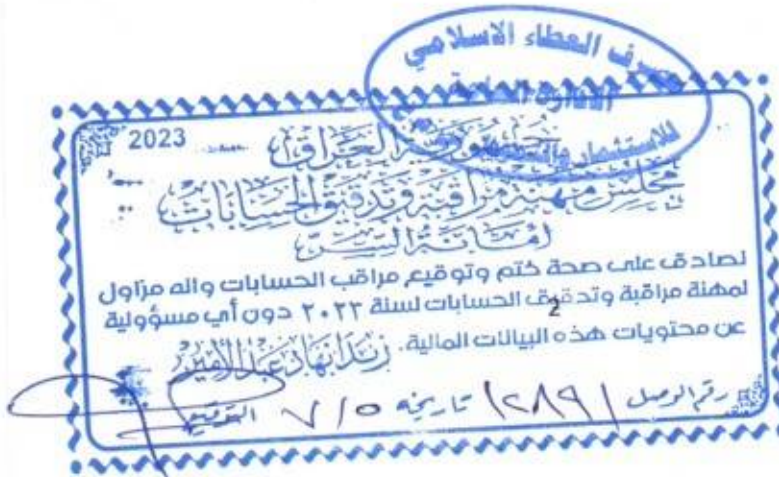 مصرف العطاء الاسلامي
الادارة العامة
للاستثمار والتمويل
2023
جمهورية العراق
مجلس مهنة مراقبة وتدقيق الحسابات
امانة السر
نصادق على صحة ختم وتوقيع مراقب الحسابات وانه مزاول
لمهنة مراقبة وتدقيق الحسابات لسنة ٢٠٢٣ دون أي مسؤولية
2
عن محتويات هذه البيانات المالية.
رقم الوصل ١٢٨٩١ تاريخه ٧/٥ التوقيع